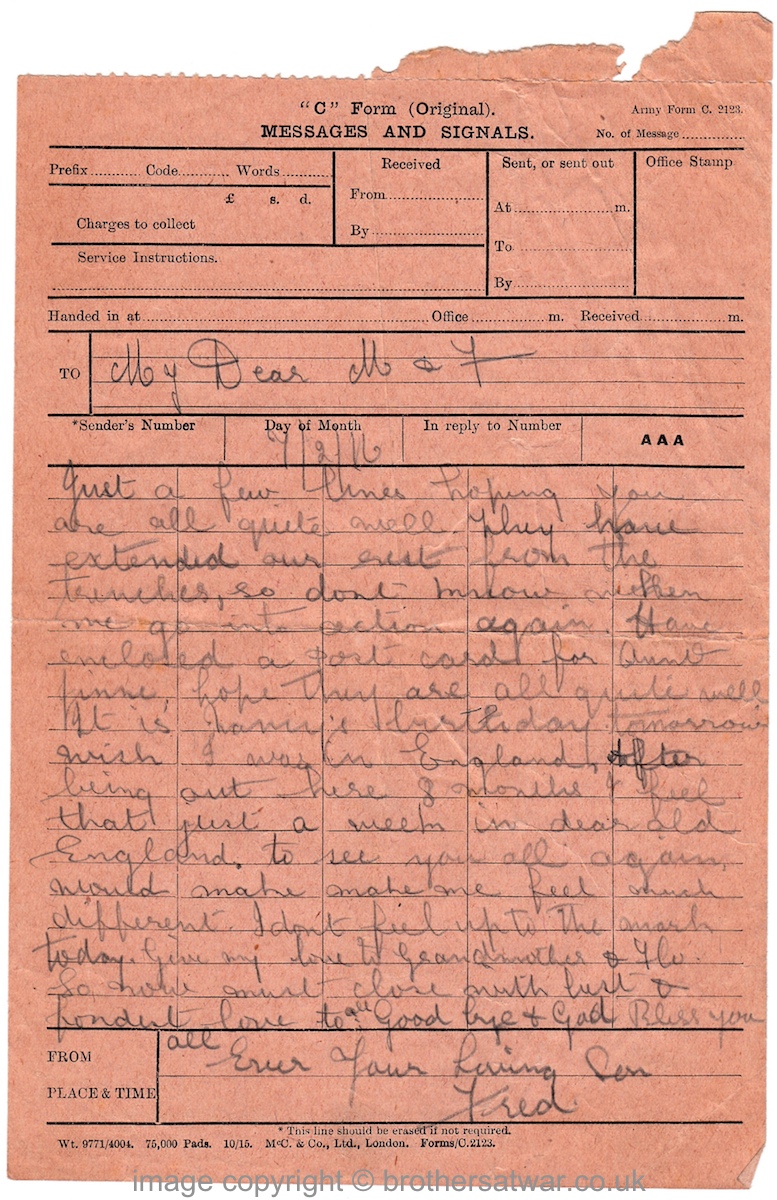 "C" Form (Original).
Army Form C. 2123.
MESSAGES AND SIGNALS.
No. of Message
Prefix Code Words
£ s. d.
Charges to collect
Service Instructions.
Received
From
By
Sent, or sent out
At m.
To
By
Office Stamp
Handed in at Office m. Received m.
TO My Dear M & F
*Sender's Number Day of Month In reply to Number AAA
7/2/16
Just a few lines hoping you
are all quite well. They have
extended our rest from the
trenches, so dont know when
we go into action again. Have
enclosed a post card for Aunt
hope they are all quite well
It is birthday tomorrow
wish I was in England, after
being out here 8 months I feel
that just a week in dear old
England. to see you all again,
would make make me feel much
different. I don't feel up to the mark
today. Give my love to Grandmother & Flo.
So now must close with best &
fondest love to all Good bye & God Bless you
all
FROM Ever Your Loving Son
PLACE & TIME Fred
* This line should be erased if not required.
Wt. 9771/4004. 75,000 Pads. 10/15. McC. & Co., Ltd., London. Forms/C.2123.
image copyright © brothersatwar.co.uk